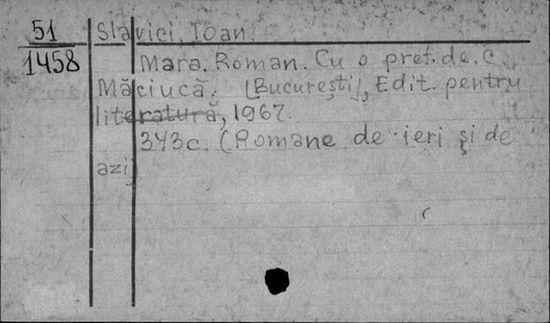 51
1458
Slavici, Ioan.
Mara. Roman. Cu o pref. de C.
Măciucă. [București], Edit. pentru
literatură, 1967.
343c. (Romane de ieri și de
azi)